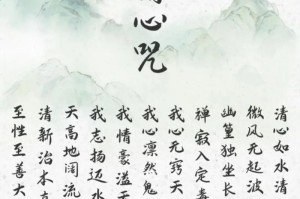 心咒
清心如水清
微风无起波
幽篁独坐长
禅寂入定毒
我心无窍天
我心凛然鬼
我情豪溢天
我志扬迈水
天高地阔流
清新治本直
至性至善大